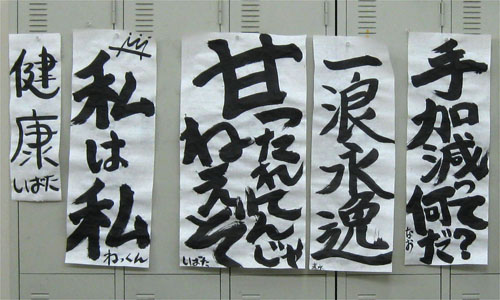 手加減って何だ?
なお
一浪永逸
甘ったれてんじゃ
ねえぞ
いばた
私は私
ねっくん
健康
いばた